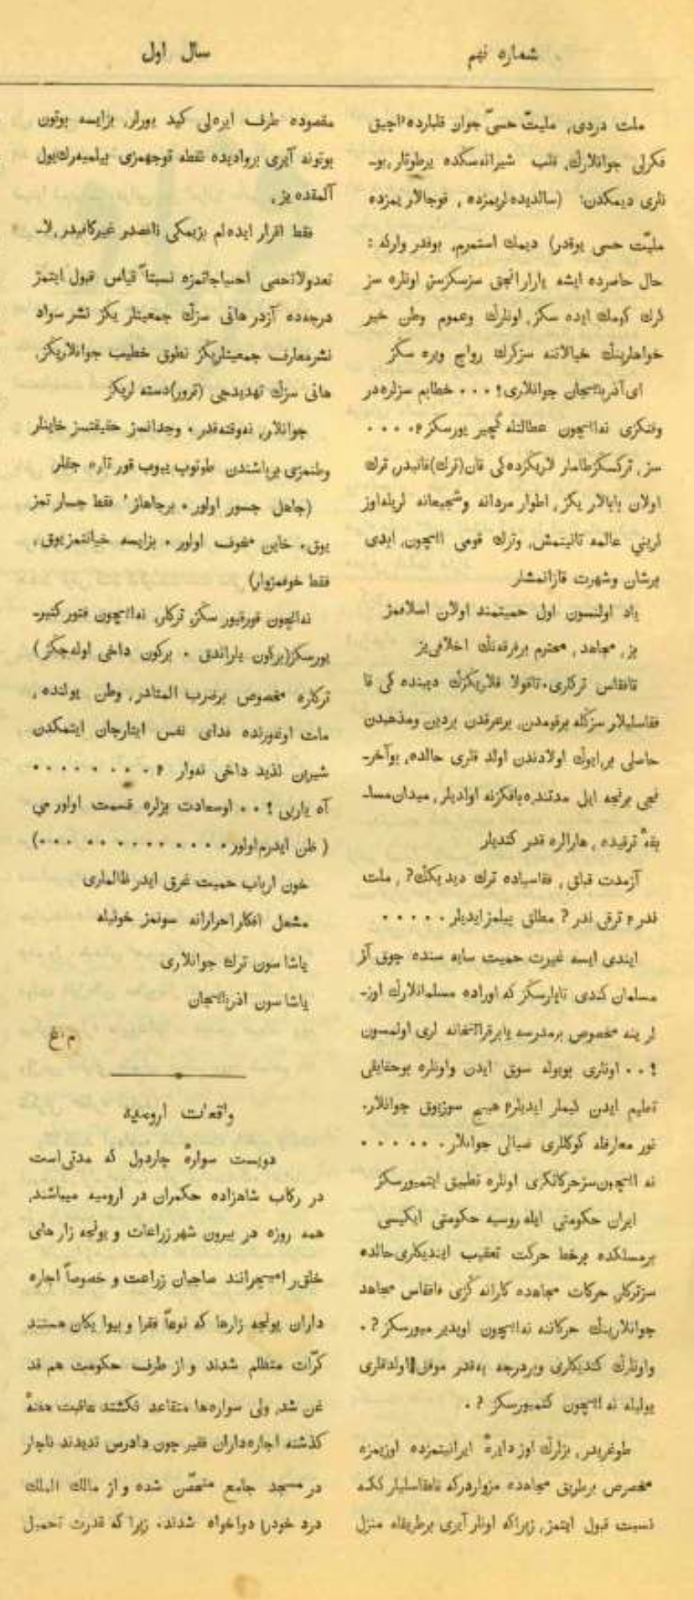 شماره نهم
سال اول
ملت دردی, ملیتّ حسیّ جوان قلبارده آچیق
فکرلی جوانلارك, قلب شیرانه‌سکده یرطوتار, بو-
ناری دیمکدن: (سالدیده لریمزده , قوجالار یمزده
ملیّت حسی یوقدر) دیمك استمرم, یوقدر وارله :
حال حاضرده ایشه یارار انجق سزسکزسز اونلره سز
كرك كومك ایده سکز, اونلرك وعموم وطن خبر
خواهلرینك خیالاتنه سزکرك رواج ویره سکز
ای آذربایجان جوانلاری! ۰۰۰ خطابم سزلره‌در
وقتکزی نه‌ایچون عطالتله کچیر یورسکز؟ ۰۰۰۰
سز, ترکسکز طامار لاریکزده‌کی قان (ترك) قانیدر, ترك
اولان بابالار یکز, اطوار مردانه وشجیعانه لریله‌اوز
لرینی عالمه تانیتمش, وترك قومی ایچون, ابدی
برشان وشهرت قازانمشلر
یاد اولنسون اول حمیتمند اولان اسلافمز
بز, مجاهد, محترم برفرقه‌نك اخلافی‌یز
قافقاس ترکلری,
فقاسلیلار سزکله برقومدن, برعرقدن بردین ومذهبدن
حاصلی بر ایوك اولادندن اولد قلری حالده, بوآخر-
نجی برنجه ایل مدتنده اولدیلر, میدان مسا-
بقهٔ ترقیده , هارالره قدر کتدیلر
آزمدت قباق , فقاسیاده ترك دیدیکك؟ , ملت
ندر؟ ترقی ندر ? مطلق بیلمز ایدیلر ۰۰۰۰۰
ایندی ایسه غیرت حمیت سایه سنده چوق آز
مسلمان کندی تاپارسکز که اوراده مسلمانلارك اوز-
لر ینه مخصوص برمدرسه یابرقرائتخانه لری اولمسون
! ۰۰ اونلری بویوله سوق ایدن واونلره بوحقایقی
تعلیم ایدن کیملر ایدیلر؟ هیچ سوزیوق جوانلار,
نور معارفله کوکللری ضیالی جوانلار, ۰۰۰۰۰
نه ایچون سز حرکاتکزی اونلره تطبیق ایتمیورسکز
ایران حکومتی ایله روسیه حکومتی ایکیسی
برمسلکده برخط حرکت تعقیب ایتدیکلری حالده
سزترکلر, حرکات مجاهده کارانه کزی قافقاس مجاهد
جوانلارینك حرکاتنه نه‌ایچون اویدیر میورسکز ? .
واونلرك کتدیکلری وبردرجه یه‌قدر موفق اولدقلری
یولیله نه ایچون کتمیورسکز ? .
طوغریدر, بزلرك اوز دایرهٔ ایرانیتمزده اوزیمزه
مخصوص برطریق مجاهده مزواردرکه قافقاسلیلار ککنه
نسبت قبول ایتمز, زیراکه اونلر آیری برطریقله منزل
مقصوده طرف ایره‌لی کید یورلر, بزایسه بوتون
بوتونه آیری بروادیده نقطه توجهمزی بیلمیه‌رك یول
آلمقده یز,
فقط اقرار ایده‌لم بزیمکی ناقصدر غیرکافیدر, لا-
تعدولاتحصی احتیاجاتمزه نسبتاً قیاس قبول ایتمز
درجه‌ده آزدر هانی سزك جمعیتلر یکز نشر سواد
نشرمعارف جمعیتلریکز نطوق خطیب جوانلاریکز,
هانی سزك تهدیدجی (ترور) دسته لریکز
جوانلار, نه‌وقته‌قدر, وجدانسز حقیقتسز خاینلر
وطنمزی برباشندن طوتوب ییوب قور تاره جقلر
(جاهل جسور اولور . برجاهلز, فقط جسار تمز
یوق, خاین مخوف اولور . بزایسه خیانتمز یوق,
فقط خوفمزوار)
نه‌ایچون قورقیور سکز, ترکلر, نه‌ایچون فتور کتیر-
یورسکز (برکون یاراندق . برکون داخی اوله‌جکز)
ترکلره مخصوص برضرب المثلدر, وطن یولنده,
ملت اوغورنده فدای نفس ایثارجان ایتمکدن
شیرین لذید داخی نه‌وار ؟ ۰۰۰۰۰۰۰۰
آه یاربی ! ۰۰ اوسعادت بزلره قسمت اولور می
( ظن ایدرم اولور ۰۰۰۰۰۰۰۰۰۰ ۰۰۰)
خون ارباب حمیت غرق ایدر ظالملری
مشعل افکار احرارانه سونمز خونیله
یاشا سون ترك جوانلاری
یاشا سون اذربایجان
م غ
واقعات ارومیه
دویست سوارهٔ چاردول که مدتی است
در رکاب شاهزاده حکمران در ارومیه میباشند,
همه روزه در بیرون شهر زراعات و یونجه زار های
خلق را میچرانند صاحبان زراعت و خصوصاً اجاره
داران یونجه زارها که نوعاً فقرا و بینوا یکان هستند
کرّات متظلم شدند و از طرف حکومت هم قد
غن شد, ولی سواره‌ها متقاعد نکشتند عاقبت هفتهٔ
کذشته اجاره‌داران فقیر چون دادرس ندیدند ناچار
در مسجد جامع متحصّن شده و از مالك الملك
درد خودرا دواخواه شدند, زیرا که قدرت تحمیل